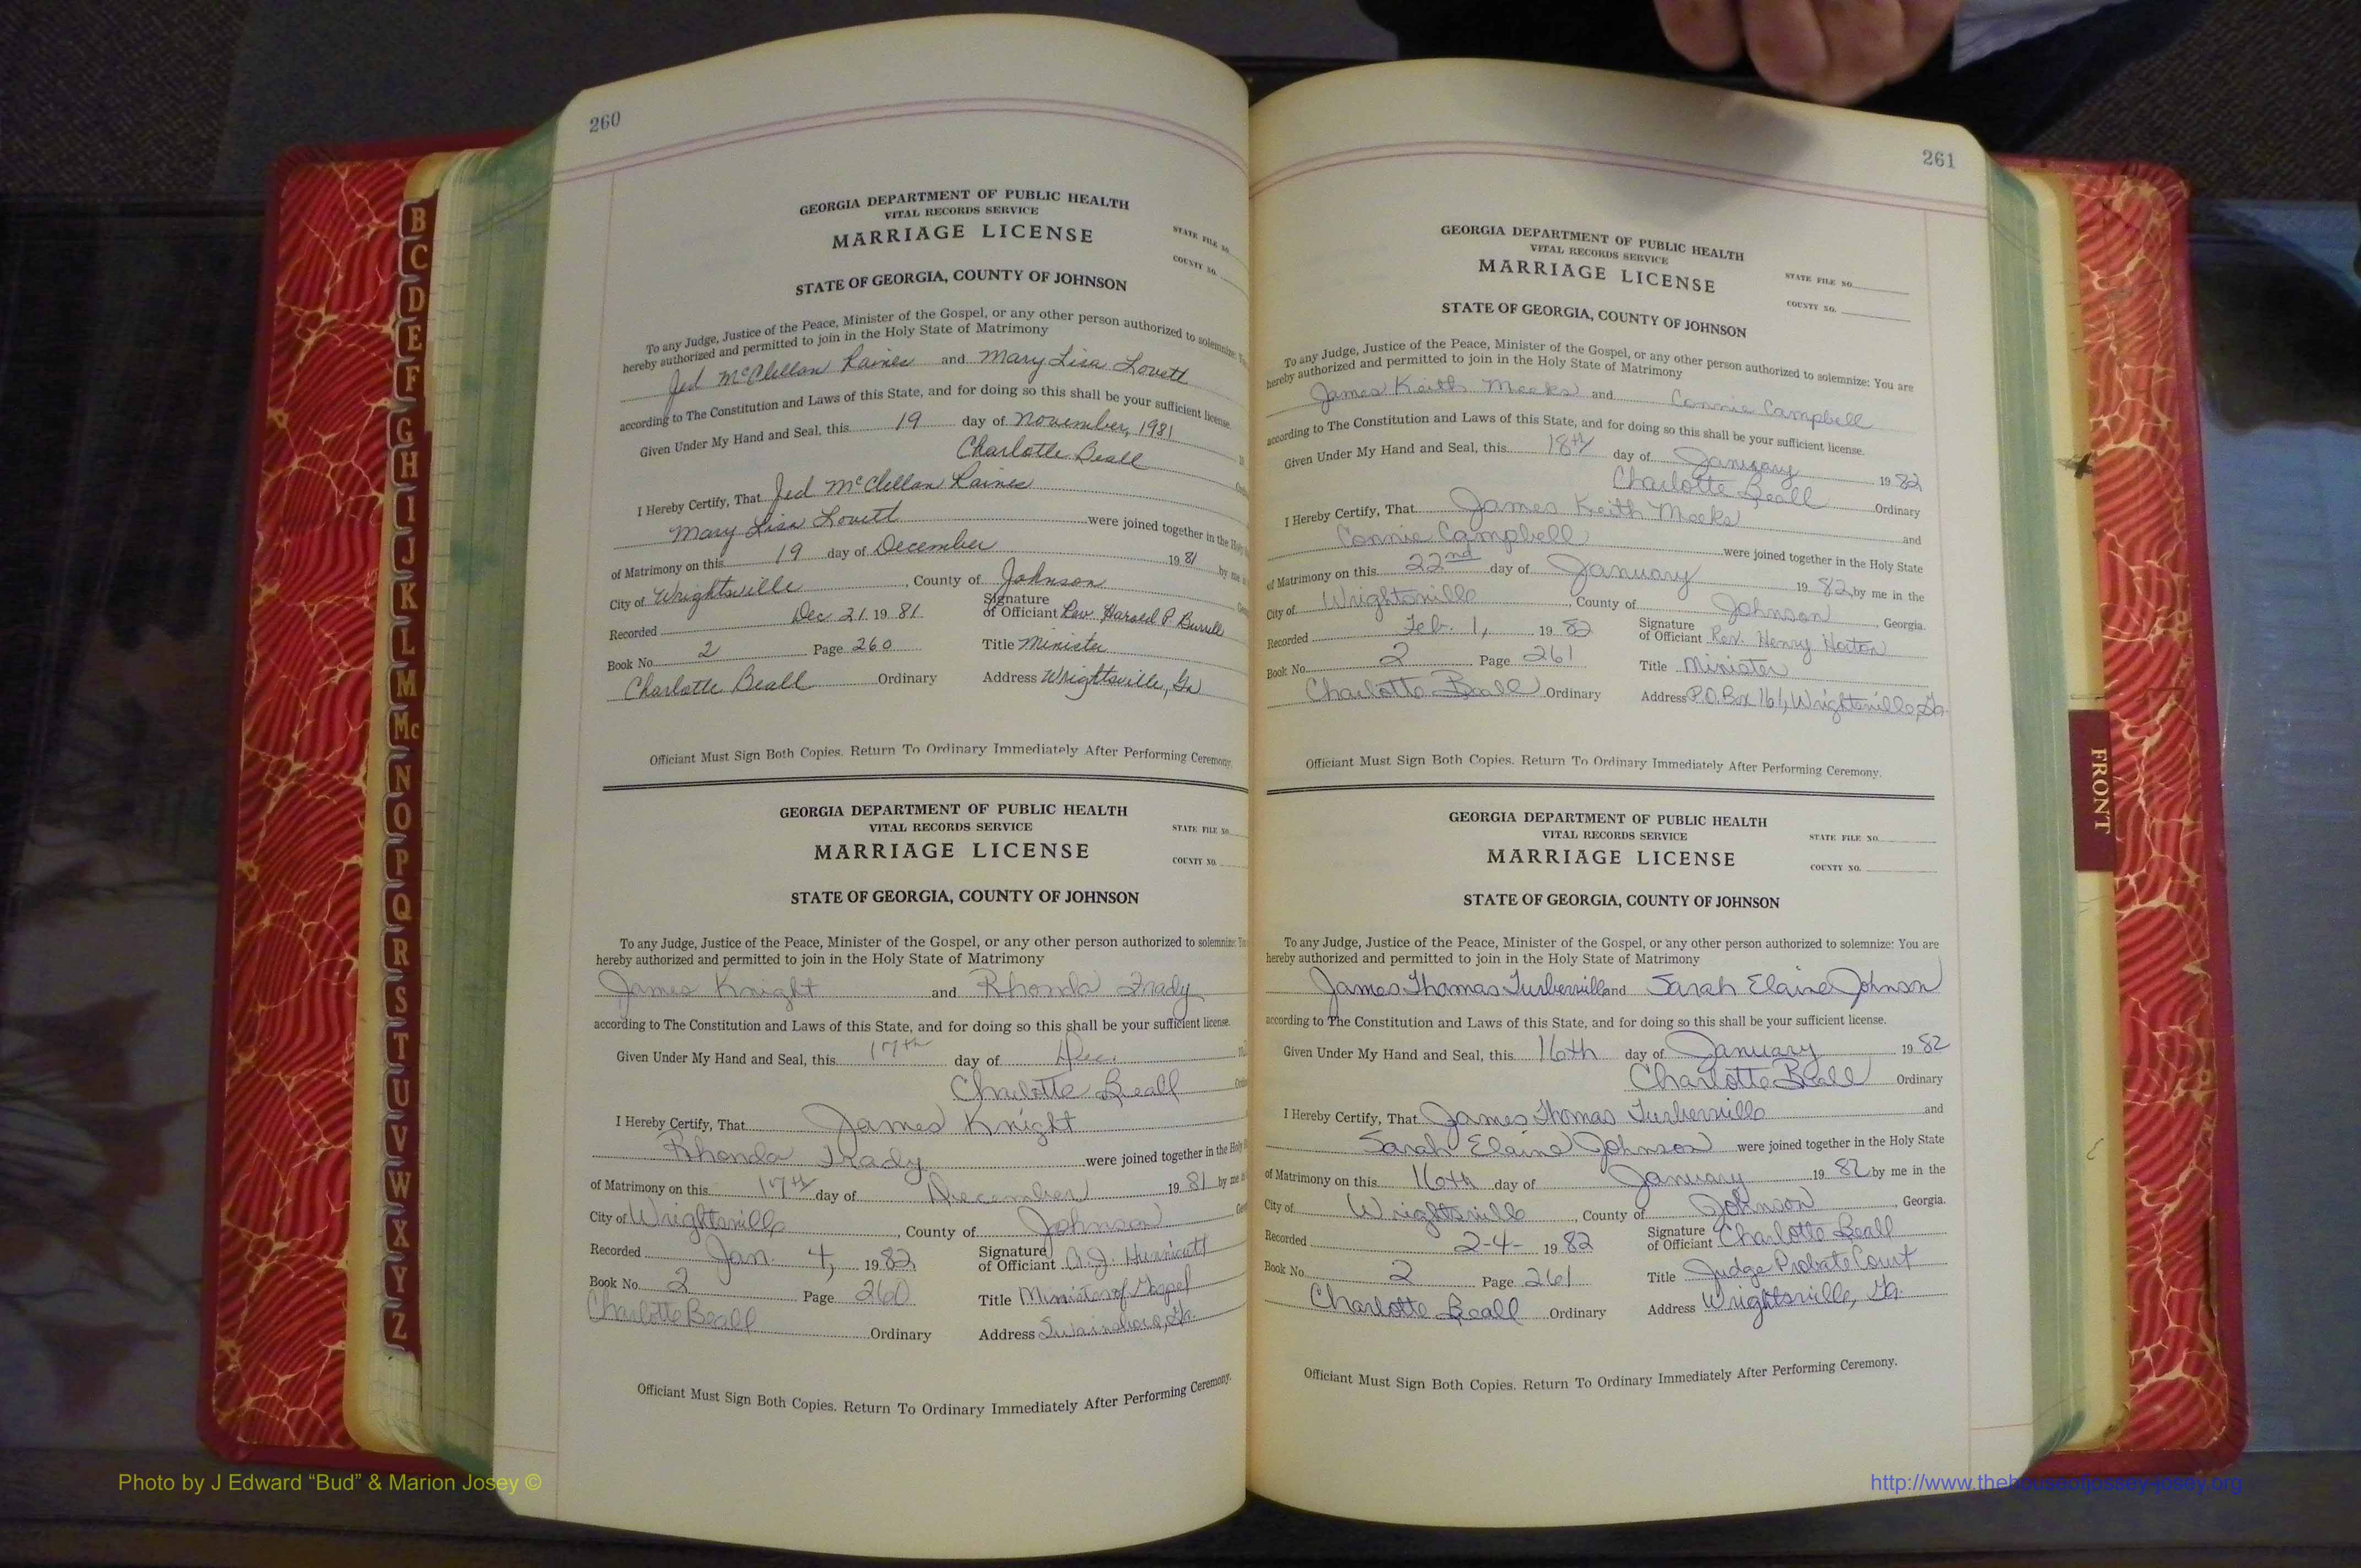 260
GEORGIA DEPARTMENT OF PUBLIC HEALTH
VITAL RECORDS SERVICE
MARRIAGE LICENSE
STATE FILE NO.
COUNTY NO.
STATE OF GEORGIA, COUNTY OF JOHNSON
To any Judge, Justice of the Peace, Minister of the Gospel, or any other person authorized to solemnize:
hereby authorized and permitted to join in the Holy State of Matrimony
Jed McClellan Raines and Mary Lisa Lovett
according to The Constitution and Laws of this State, and for doing so this shall be your sufficient license.
Given Under My Hand and Seal, this 19 day of November, 1981
Charlotte Beall
I Hereby Certify, That Jed McClellan Raines
Mary Lisa Lovett were joined together in the
of Matrimony on this 19 day of December 19 81 by me
City of Wrightsville, County of Johnson
Recorded Dec 21 19 81 Signature of Officiant Rev. Harold P Burrell
Book No. 2 Page 260 Title Minister
Charlotte Beall Ordinary Address Wrightsville, Ga
Officiant Must Sign Both Copies. Return To Ordinary Immediately After Performing Ceremony.
GEORGIA DEPARTMENT OF PUBLIC HEALTH
VITAL RECORDS SERVICE
MARRIAGE LICENSE
STATE FILE NO.
COUNTY NO.
STATE OF GEORGIA, COUNTY OF JOHNSON
To any Judge, Justice of the Peace, Minister of the Gospel, or any other person authorized to solemnize:
hereby authorized and permitted to join in the Holy State of Matrimony
James Knight and Rhonda
according to The Constitution and Laws of this State, and for doing so this shall be your sufficient license.
Given Under My Hand and Seal, this 17th day of Dec.
Charlotte Beall
I Hereby Certify, That James Knight
Rhonda were joined together in the Holy
of Matrimony on this 17th day of December 19 81 by me
City of Wrightsville, County of Johnson
Recorded Jan. 4, 19 82 Signature of Officiant
Book No. 2 Page 260 Title Minister of Gospel
Charlotte Beall Ordinary Address Swainsboro, Ga.
Officiant Must Sign Both Copies. Return To Ordinary Immediately After Performing Ceremony.
261
GEORGIA DEPARTMENT OF PUBLIC HEALTH
VITAL RECORDS SERVICE
MARRIAGE LICENSE
STATE FILE NO.
COUNTY NO.
STATE OF GEORGIA, COUNTY OF JOHNSON
To any Judge, Justice of the Peace, Minister of the Gospel, or any other person authorized to solemnize: You are
hereby authorized and permitted to join in the Holy State of Matrimony
James Keith Meeks and Connie Campbell
according to The Constitution and Laws of this State, and for doing so this shall be your sufficient license.
Given Under My Hand and Seal, this 18th day of January 19 82
Charlotte Beall Ordinary
I Hereby Certify, That James Keith Meeks and
Connie Campbell were joined together in the Holy State
of Matrimony on this 22nd day of January 19 82 by me in the
City of Wrightsville, County of Johnson, Georgia.
Recorded Feb. 1, 19 82 Signature of Officiant Rev. Henry Horton
Book No. 2 Page 261 Title Minister
Charlotte Beall Ordinary Address P.O. Box 161, Wrightsville, Ga.
Officiant Must Sign Both Copies. Return To Ordinary Immediately After Performing Ceremony.
GEORGIA DEPARTMENT OF PUBLIC HEALTH
VITAL RECORDS SERVICE
MARRIAGE LICENSE
STATE FILE NO.
COUNTY NO.
STATE OF GEORGIA, COUNTY OF JOHNSON
To any Judge, Justice of the Peace, Minister of the Gospel, or any other person authorized to solemnize: You are
hereby authorized and permitted to join in the Holy State of Matrimony
James Thomas Turberville and Sarah Elaine Johnson
according to The Constitution and Laws of this State, and for doing so this shall be your sufficient license.
Given Under My Hand and Seal, this 16th day of January 19 82
Charlotte Beall Ordinary
I Hereby Certify, That James Thomas Turberville and
Sarah Elaine Johnson were joined together in the Holy State
of Matrimony on this 16th day of January 19 82 by me in the
City of Wrightsville, County of Johnson, Georgia.
Recorded 2-4- 19 82 Signature of Officiant Charlotte Beall
Book No. 2 Page 261 Title Judge Probate Court
Charlotte Beall Ordinary Address Wrightsville, Ga.
Officiant Must Sign Both Copies. Return To Ordinary Immediately After Performing Ceremony.
B
C
D
E
F
G
H
I
J
K
L
M
Mc
N
O
P
Q
R
S
T
U
V
W
X
Y
Z
FRONT
Photo by J Edward “Bud” & Marion Josey ©
http://www.thehouseofjossey-josey.org